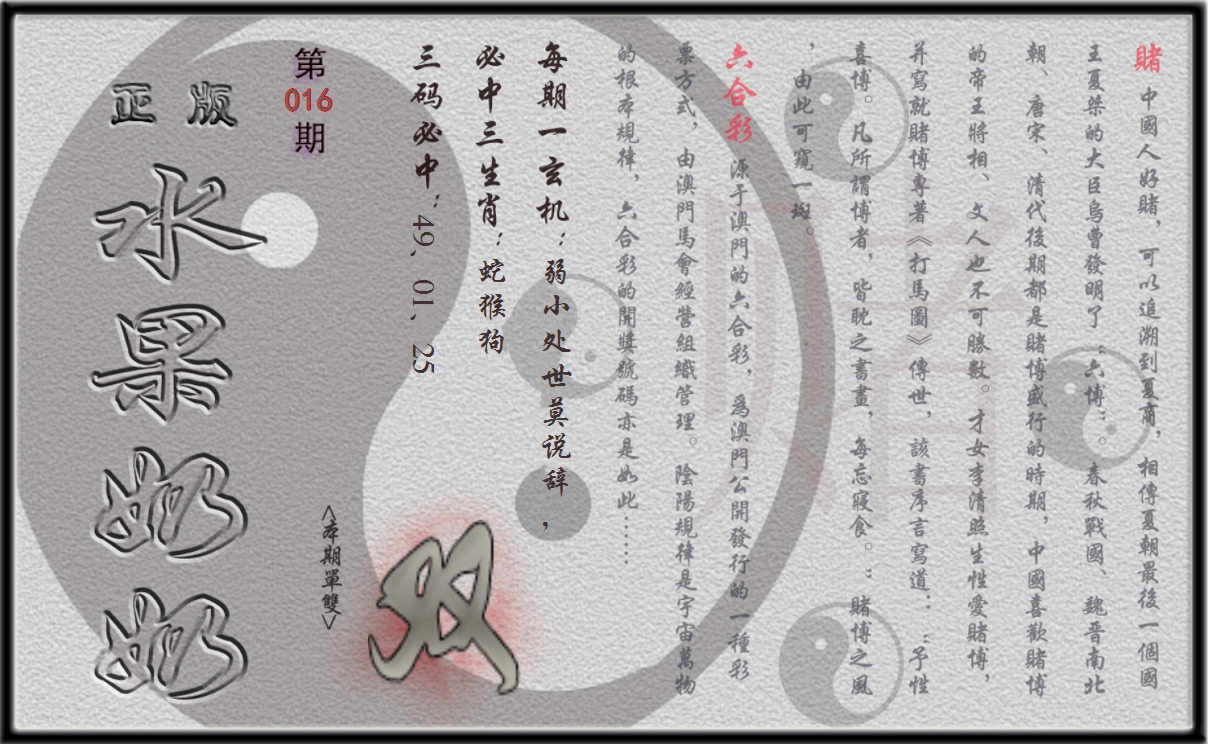 賭 中國人好賭，可以追溯到夏商，相傳夏朝最後一個國
王夏桀的大臣烏曹發明了“六博”。春秋戰國、魏晋南北
朝、唐宋、清代後期都是賭博盛行的時期，中國喜歡賭博
的帝王將相、文人也不可勝數。才女李清照生性愛賭博，
并寫就賭博專著《打馬圖》傳世，該書序言寫道：“予性
喜博。凡所謂博者，皆眈之書畫，每忘寢食。：賭博之風
，由此可窺一斑。
六合彩 源于澳門的六合彩，爲澳門公開發行的一種彩
票方式，由澳門馬會經營組織管理。陰陽規律是宇宙萬物
的根本規律，六合彩的開獎號碼亦是如此……
每期一玄机：弱小处世莫说辞，
必中三生肖：蛇猴狗
三码必中：49，01，25
第
016
期
<本期單雙>
双
正版
水果奶奶
赌